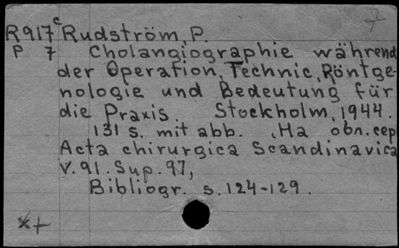 R917c Rudström, P.
P 7 Cholangiographie während
der Operation, Technic, Röntge-
nologie und Bedeutung für
die Praxis. Stockholm, 1944.
131 s. mit abb. (На обл. сер
Acta chirurgica Scandinavica
V. 91. Sup. 97,
Bibliogr. s. 124-129.